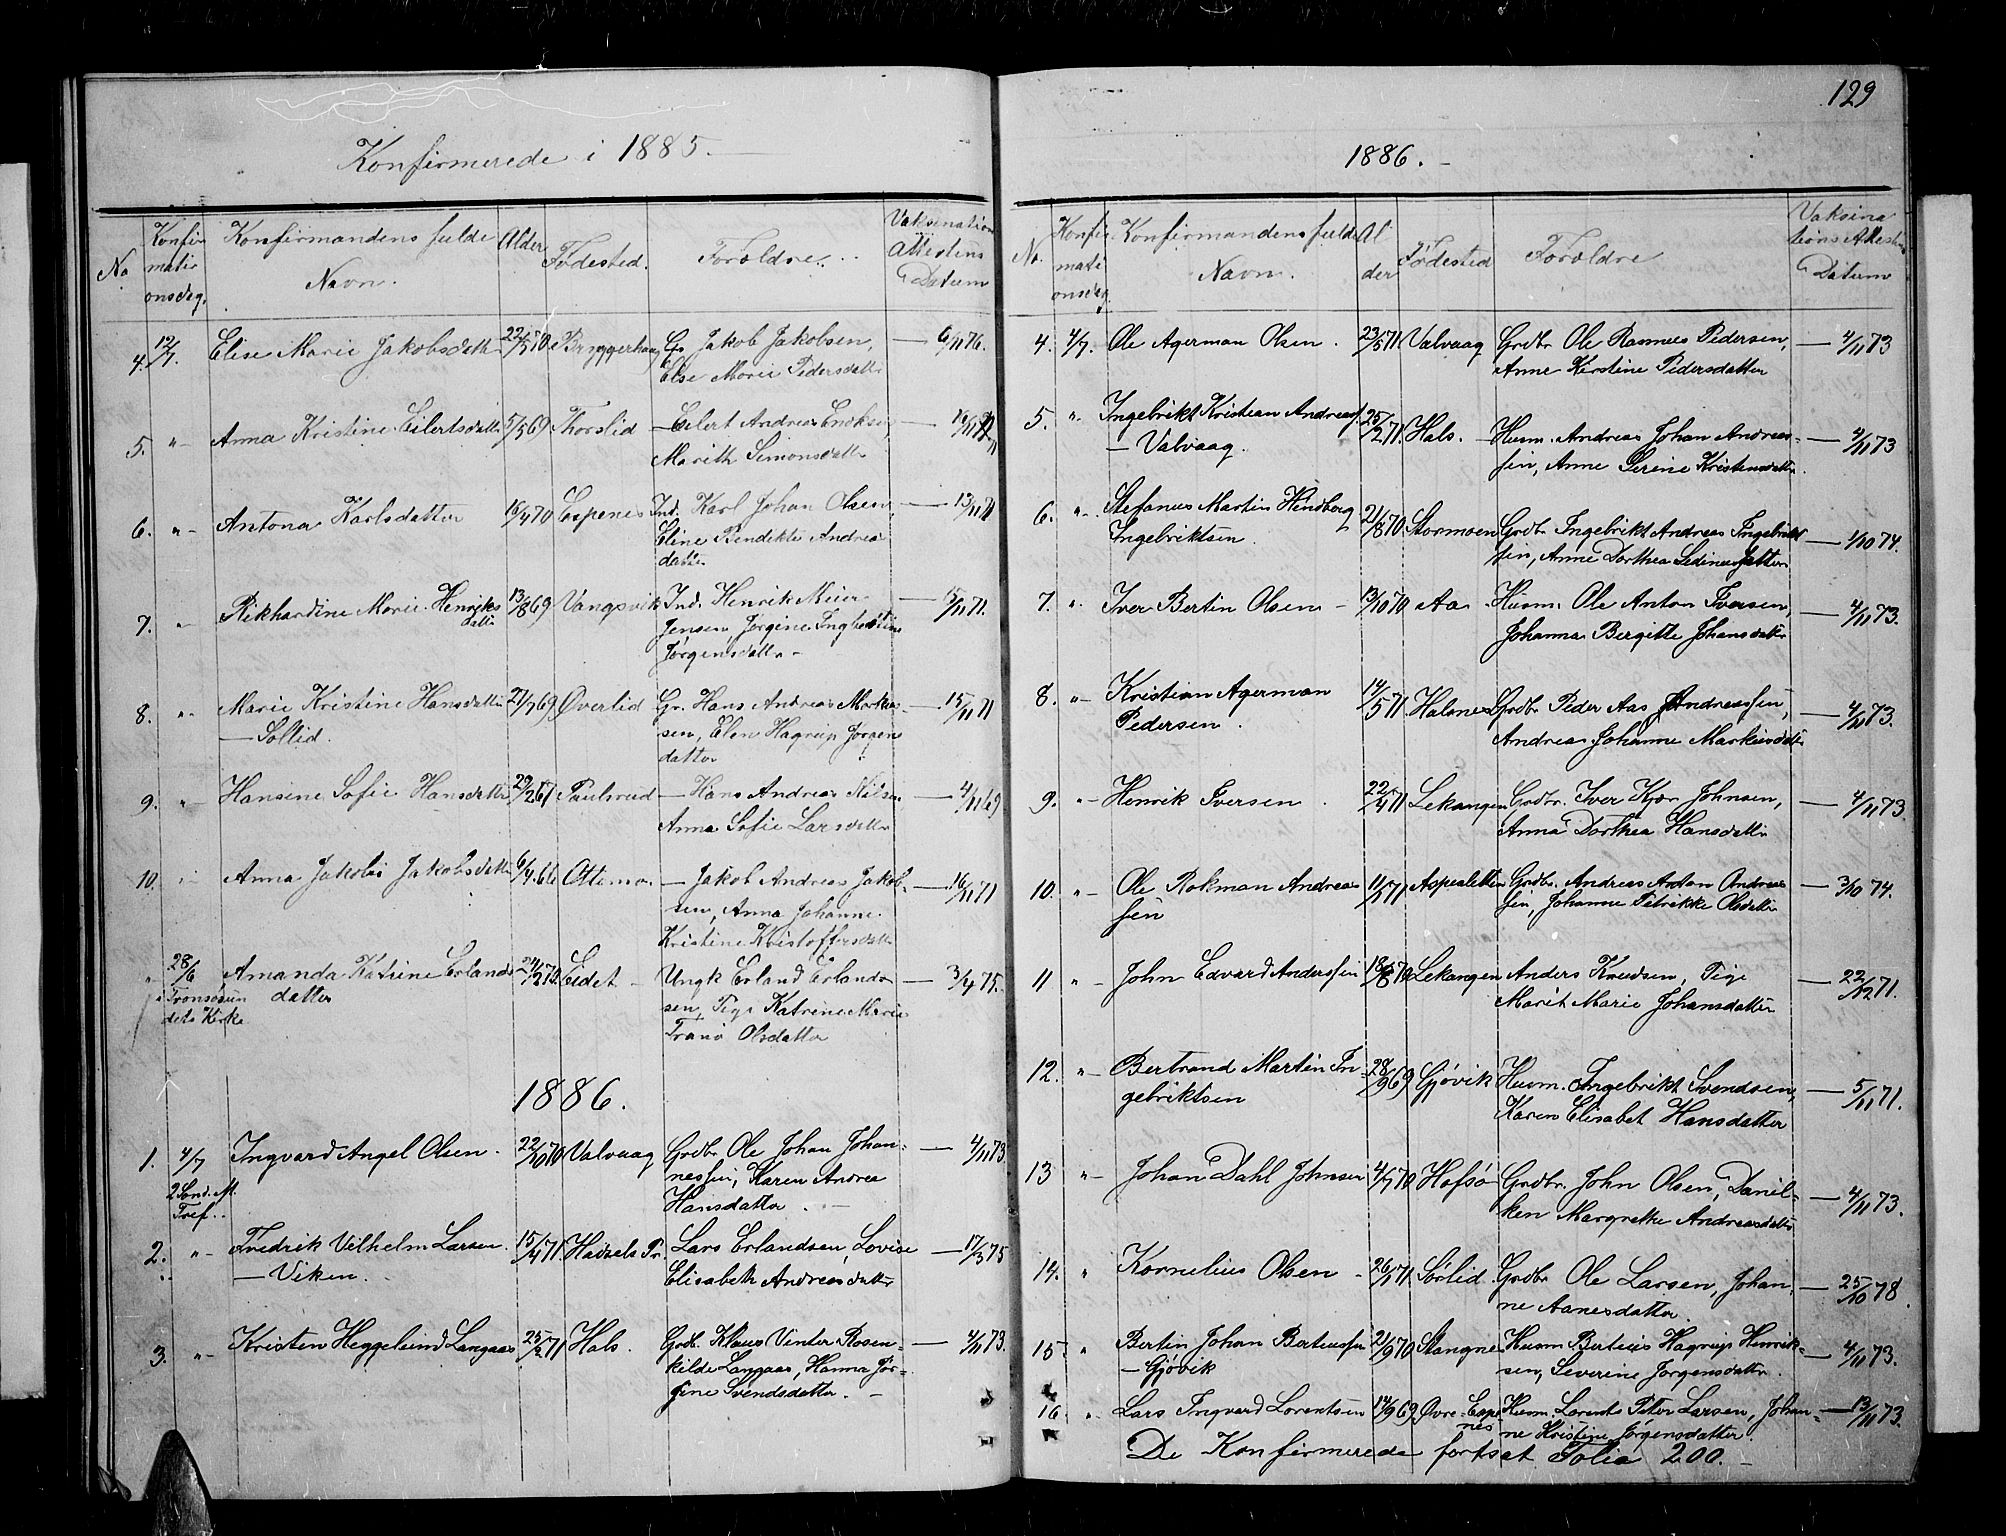 129
Konfirmerede i 1885.
No. Konfirmationsdag. Konfirmandens fulde Navn. Alder Fødested. Forældre. Vaksination Attestens Datum
4. 12/7. Elise Marie Jakobsdatter 22/5 70 Bryggerhaug Gr. Jakob Jakobsen, — 6/11 76.
Else Marie Pedersdatter
5. " Anna Kristine Eilertsdatter 5/5 69 Thorslid — Eilert Andreas Enoksen,
Marith Simonsdatter
6. " Antona Karlsdatter 16/4 70 Espenes Ind. Karl Johan Olsen, — 13/11 71
Eline Bendikte Andreas
datter
7. " Rikhardine Marie Henriks 13/8 69 Vangsvik Ind. Henrik Meier — 13/11 71.
datter Jensen Jørgine Ingbertine
Jørgensdatter
8. " Marie Kristine Hansdatter 21/7 69 Øverlid Gr. Hans Andreas Markus — 15/11 71
— Sollid. sen, Elen Hagrup Jørgens
datter
9. " Hansine Sofie Hansdatter 29/2 67 Paulsrud — Hans Andreas Nilsen — 4/11 69
Anna Sofie Larsdatter
10. " Anna Jakobie Jakobsdatter 6/4 66 Ottemo — Jakob Andreas Jakob- — 16/11 71
sen, Anna Johanne
Kristine Kristoffersdatter
" 28/6 Amanda Katrine Erlands 24/2 70. Eidet — Ungk Erland Erlands — 3/4 75.
i Tronsøsun datter sen, Pige Katrine Marie
dets Kirke Tranø Olsdatter
1886.
1. 4/7 Ingvard Angel Olsen. 22/10 70 Valvaag Grdbr Ole Johan Johan- — 4/11 73.
2 Sønd. At. nessen, Karen Andrea
Tref. Hansdatter.
2. " Fredrik Vilhelm Larsen. 15/4 71. Havsels Pr. Lars Erlandsen, Lovise — 17/3 75
— Viken. Elisabeth Andreasdatter
3. " Kristen Heggelund Langaas 25/2 71 Hals. Grdb. Klaus Vinter Rosen- — 4/11 73.
kilde Langaas, Hanna Jør-
gine Svendsdatter.
1886.
No. Konfirmationsdag. Konfirmandens fulde Navn. Alder Fødested Forældre Vaksinationsattestens Datum
4. 4/7. Ole Agerman Olsen. 23/5 71 Valvaag Grdbr Ole Rasmus Pedersen, — 4/11 73
Anne Kirstine Pedersdatter
5. " Ingebrikt Kristian Andreass. 25/2 71. Hals. — Husm. Andreas Johan Andreas- — 4/11 73
— Valvaag. sen, Anne Serine Kristensdatter.
6. " Stefanus Martin Hindberg 21/8 70 Stormoen Grdbr Ingebrikt Andreas Ingebrikt — 1/10 74.
Ingebriktsen. sen, Anne Dorthea Sedinusdatter
7. " Iver Bertin Olsen — 13/10 70 Aa. Husm. Ole Anton Iversen, — 4/11 73.
Johanna Bergitte Johansdatter
8. " Kristian Agerman 14/5 71 Halsnes Grdbr Peder Aas Andreassen, — 4/11 73.
Pedersen. Andrea Johanne Markusdatter
9. " Henrik Iversen. 22/4 71 Lekangen Grdbr. Iver Kjær Johnsen, — 4/11 73.
Anna Dorthea Hansdatter
10. " Ole Rokman Andreas 11/2 71 Aspesletten Grdbr. Andreas Anton Andreas — 3/10 74.
sen sen, Johanne Petrikke Olsdatter
11 " John Edvard Anderssen 18/8 70 Lekangen Anders Knudsen, Pige — 22/12 71.
Marit Marie Johansdatter
12. " Bertrand Martin In 28/9 69 Gjøvik Husm. Ingebrikt Svendsen, — 5/11 71.
gebriktsen Karen Elisabet Hansdatter
13 " Johan Dahl Johnsen 4/7 70 Hofsø Grdbr. John Olsen, Danil- — 4/11 73.
ken Margrethe Andreasdatter
14. " Kornelius Olsen — 26/1 71 Sørlid Grdbr Ole Larsen, Johan — 25/10 78.
ne Aanesdatter.
15. " Bertin Johan Berteussen 2/9 70 Stangnes Husm Berteus Hagrup Henrik- — 4/11 73.
— Gjøvik sen, Severine Jørgensdatter.
16. " Lars Ingvard Lorentsen 14/9 69 Øvre-Espe Husm. Lorents Peter Larsen, Johan- — 13/11 73.
nes ne Kristine Jørgensdatter.
De Konfirmerede fortsat Folio 200.